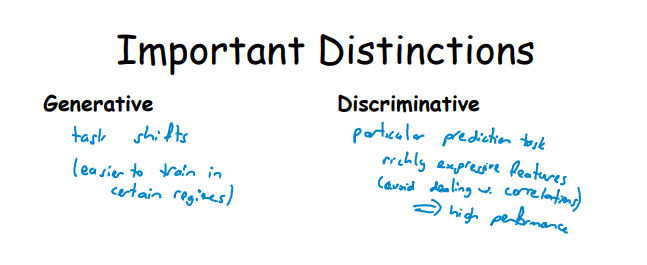 Important Distinctions
Generative
task shifts
(easier to train in
certain regimes)
Discriminative
particular prediction task
richly expressive features
(avoid dealing w. correlations)
⇒ high performance